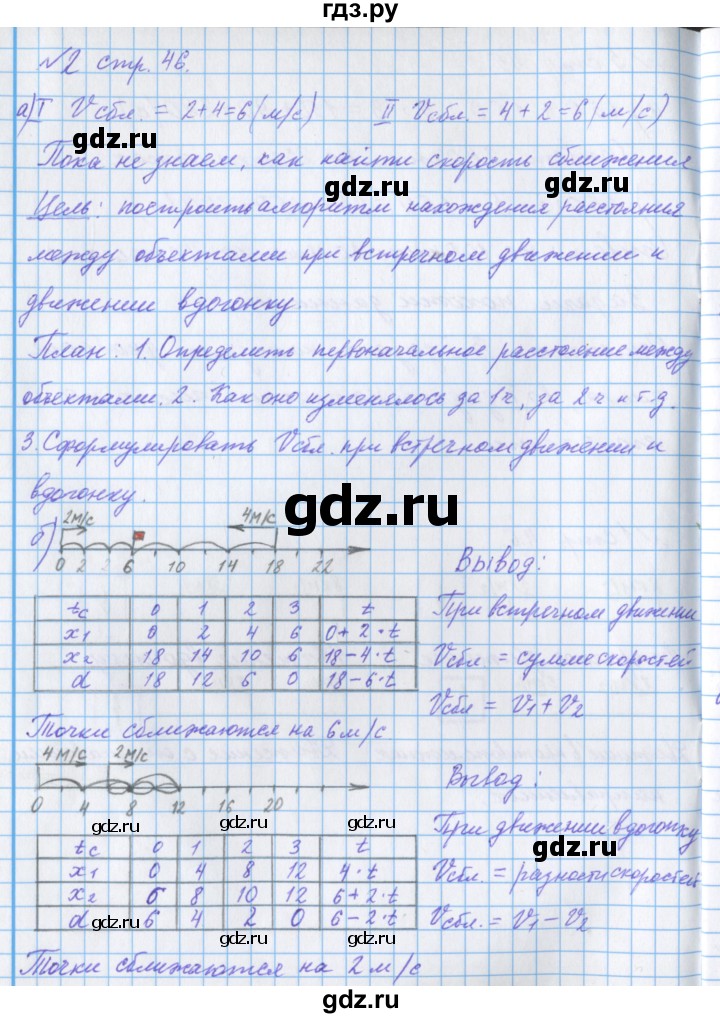 гдз.ру
№2 стр. 46.
а) I Vсбл. = 2+4=6(м/с) II Vсбл. = 4+2=6(м/с)
Пока не знаем, как найти скорость сближения
gdz.ru gdz.ru
Цель: построить алгоритм нахождения расстояния
между объектами при встречном движении и
движении вдогонку
План: 1. Определить первоначальное расстояние между
объектами. 2. Как оно изменялось за 1ч, за 2ч и т.д.
3. Сформулировать Vсбл. при встречном движении и
вдогонку.
gdz.ru
б) 2м/с 4м/с
0 2 2 6 10 14 18 22
Вывод:
При встречном движении
Vсбл. = сумме скоростей
Vсбл = V1 + V2
tс 0 1 2 3 t
x1 0 2 4 6 0+2·t
x2 18 14 10 6 18-4·t
d 18 12 6 0 18-6·t
Точки сближаются на 6м/с
4м/с 2м/с
0 4 8 12 16 20
gdz.ru gdz.ru
Вывод:
При движении вдогонку
Vсбл. = разности скоростей
Vсбл. = V1 - V2
gdz.ru
tс 0 1 2 3 t
x1 0 4 8 12 4·t
x2 6 8 10 12 6+2·t
d 6 4 2 0 6-2·t
gdz.ru gdz.ru
Точки сближаются на 2м/с
gdz.ru
gdz.ru